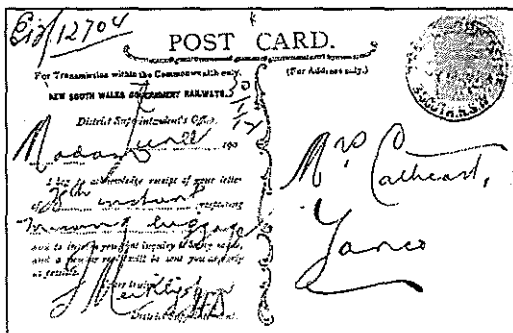 Lis/12704
POST CARD.
For Transmission within the Commonwealth only.
(For Address only.)
NEW SOUTH WALES GOVERNMENT RAILWAYS.
30/1/12
District Superintendent's Office,
190
Madam
I beg to acknowledge receipt of your letter
of 28th instant respecting
missing luggage
and to inform you that inquiry is being made,
and a further reply will be sent you as early
as possible.
Yours truly,
District Superintendent.
Mrs Cathcart,
Yanco